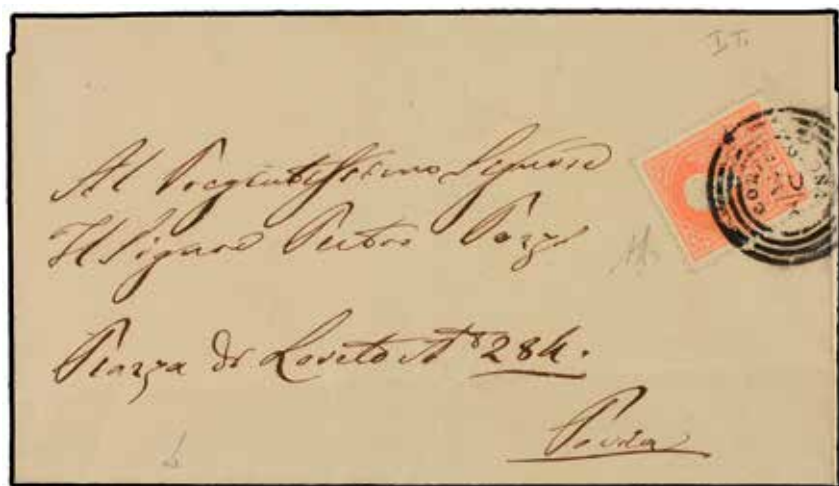 I. T.
Al Pregiatissimo Signore
Il Signore Pietro Pozzi
Piazza di Loreto N.º 284.
Pavia